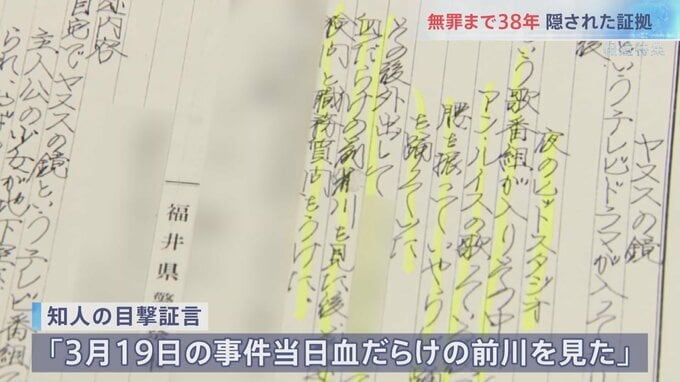 無罪まで38年 隠された証拠
ヤヌスの鏡
というテレビドラマが入って
夜のヒットスタジオ
という歌番組が入りその中で
アン・ルイスの歌っている
腰を振っていやらし
を踊っていた
その後外出して
血だらけの前川を見た後
職務質問をうけた
福井県警
内容
自宅でヤヌスの鏡というテレビ番組
主人公の少女が地下室
知人の目撃証言
「3月19日の事件当日血だらけの前川を見た」